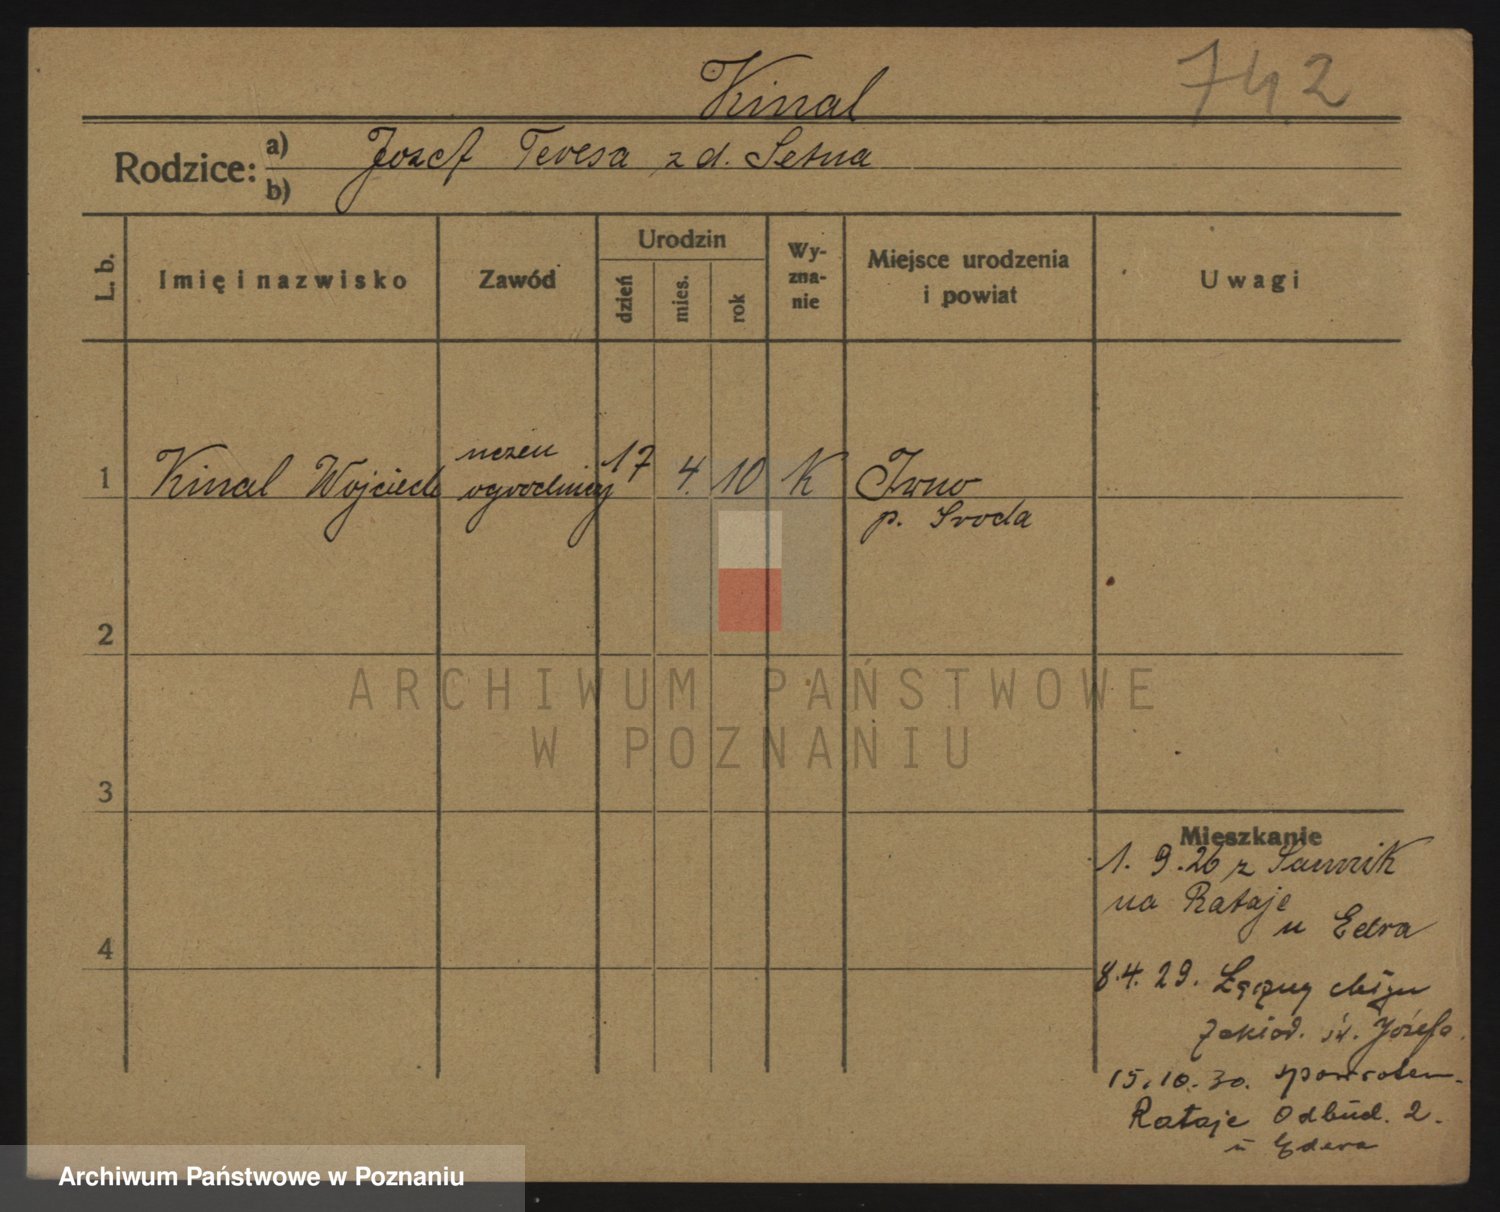 742
Kinal
Rodzice:
a) Jozef Teresa z d. Setna
b)
L. b.
Imię i nazwisko
Zawód
Urodzin
dzień
mies.
rok
Wy-
zna-
nie
Miejsce urodzenia
i powiat
Uwagi
1 Kinal Wojciech
uczeń
ogrodniczy
17 4. 10 K
Iwno
p. Sroda
2
3
4
ARCHIWUM PAŃSTWOWE
W POZNANIU
Mieszkanie
1. 9. 26 z
na Rataje
u Edra
8.4.29.
św. Józefa.
15.10.30. spowrotem
Rataje Odbud. 2.
u
Archiwum Państwowe w Poznaniu